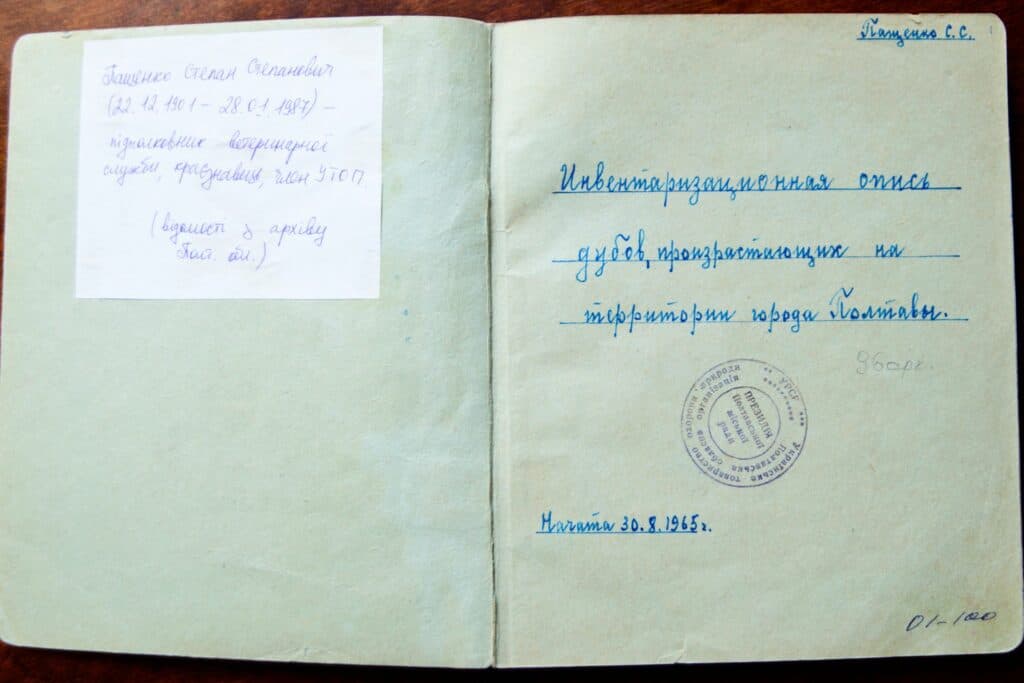 Пащенко Степан Степанович
(22.12.1901 – 28.01.1987) –
підполковник ветеринарної
служби, краєзнавець, член УТОП.
(відомості з архіву
Полт. обл.)
Пащенко С. С.
Инвентаризационная опись
дубов, произрастающих на
территории города Полтавы.
УРСР
Українське товариство охорони природи
Полтавська обласна організація
ПРЕЗИДІЯ
Полтавської
міської
ради
Начата 30.8.1965г.
01-100